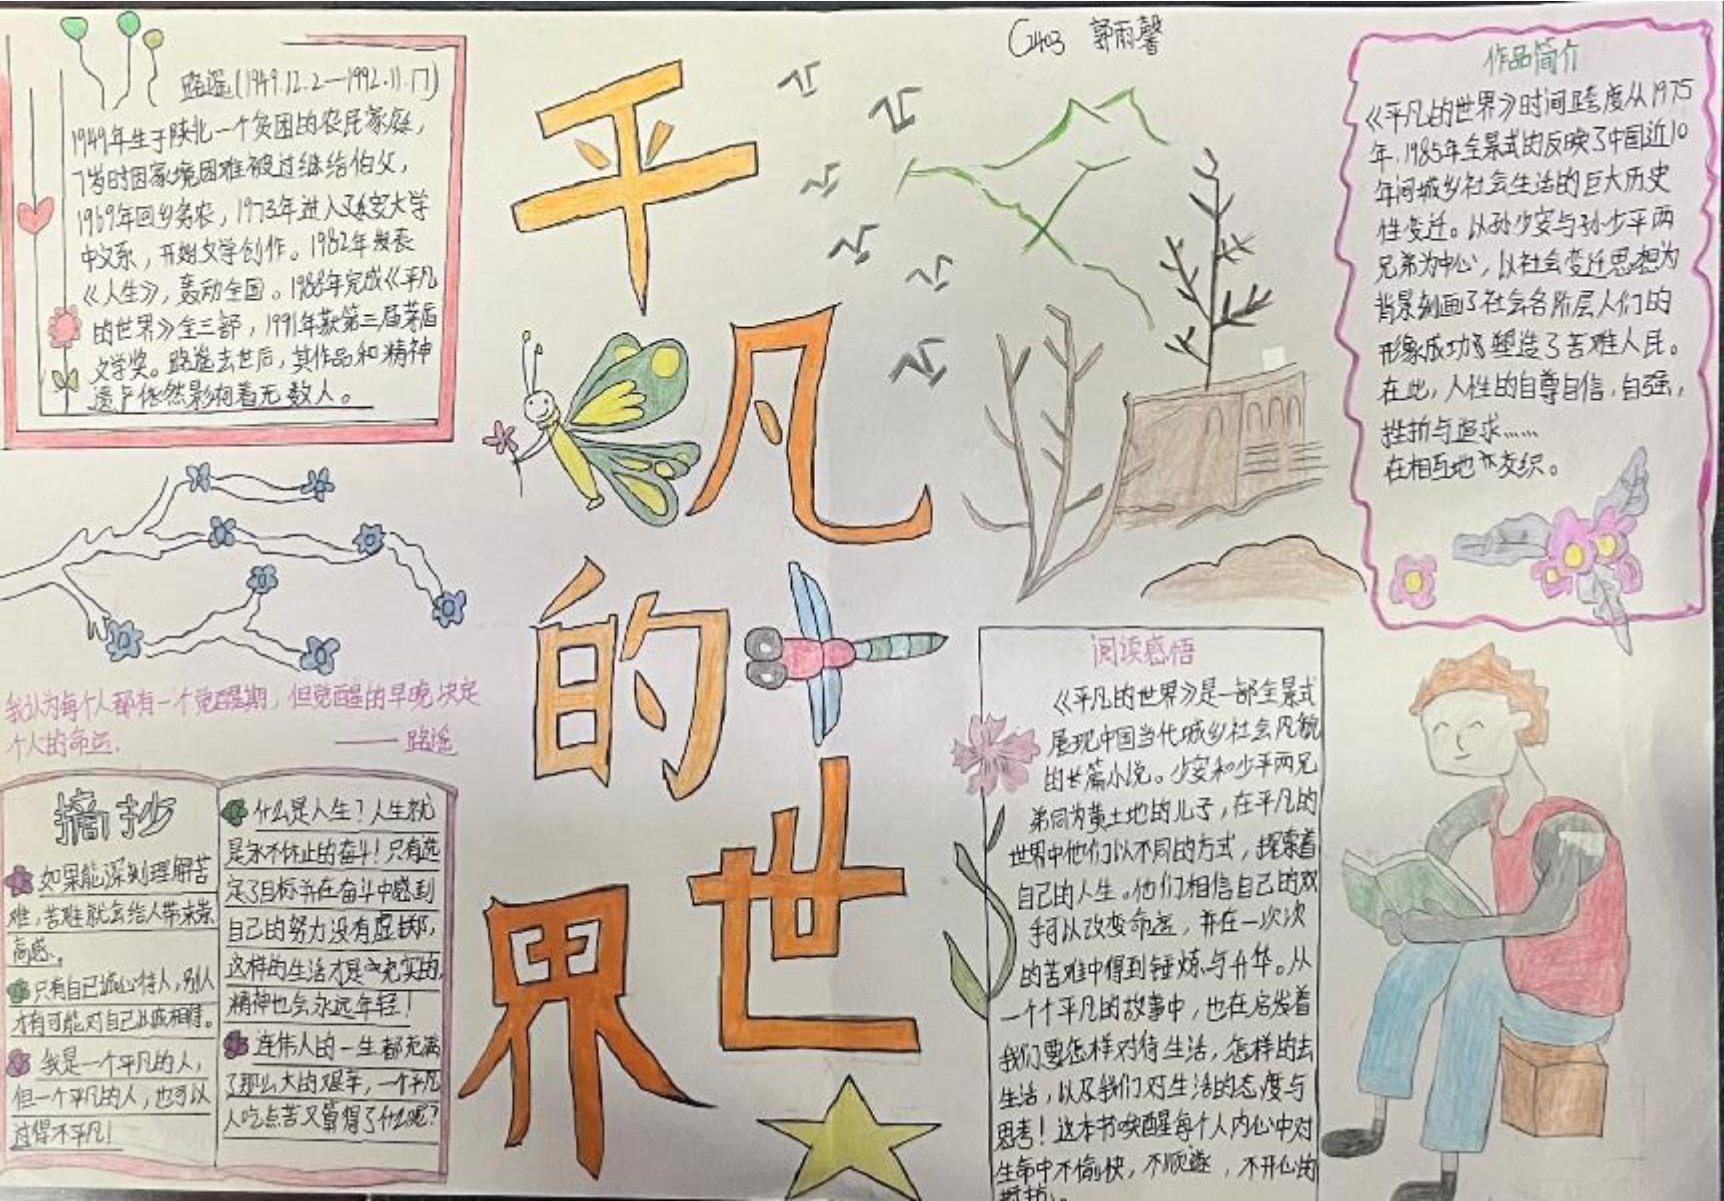 C2403 郭雨馨
平凡的世界
路遥(1949.12.2—1992.11.17)
1949年生于陕北一个贫困的农民家庭，
7岁时因家境困难被过继给伯父，
1969年回乡务农，1973年进入延安大学
中文系，开始文学创作。1982年发表
《人生》，轰动全国。1988年完成《平凡
的世界》全三部，1991年获第三届茅盾
文学奖。路遥去世后，其作品和精神
遗产依然影响着无数人。
我认为每个人都有一个觉醒期，但觉醒的早晚决定
个人的命运.
——路遥
摘抄
如果能深刻理解苦
难，苦难就会给人带来崇
高感。
只有自己诚心待人，别人
才有可能对自己以诚相待。
我是一个平凡的人，
但一个平凡的人，也可以
过得不平凡！
什么是人生？人生就
是永不休止的奋斗！只有选
定了目标并在奋斗中感到
自己的努力没有虚掷，
这样的生活才是充实的，
精神也会永远年轻！
连伟人的一生都充满
了那么大的艰辛，一个平凡
人吃点苦又算得了什么呢？
作品简介
《平凡的世界》时间跨度从1975
年，1985年全景式的反映了中国近10
年间城乡社会生活的巨大历史
性变迁。以孙少安与孙少平两
兄弟为中心，以社会变迁思想为
背景刻画了社会各阶层人们的
形象成功的塑造了苦难人民。
在此，人性的自尊自信，自强，
挫折与追求……
在相互地交织。
阅读感悟
《平凡的世界》是一部全景式
展现中国当代城乡社会风貌
的长篇小说。少安和少平两兄
弟同为黄土地的儿子，在平凡的
世界中他们以不同的方式，探索着
自己的人生。他们相信自己的双
手可以改变命运，并在一次次
的苦难中得到锤炼与升华。从
一个个平凡的故事中，也在启发着
我们要怎样对待生活，怎样的去
生活，以及我们对生活的态度与
思考！这本书唤醒每个人内心中对
生命中不愉快，不顺遂，不开心的